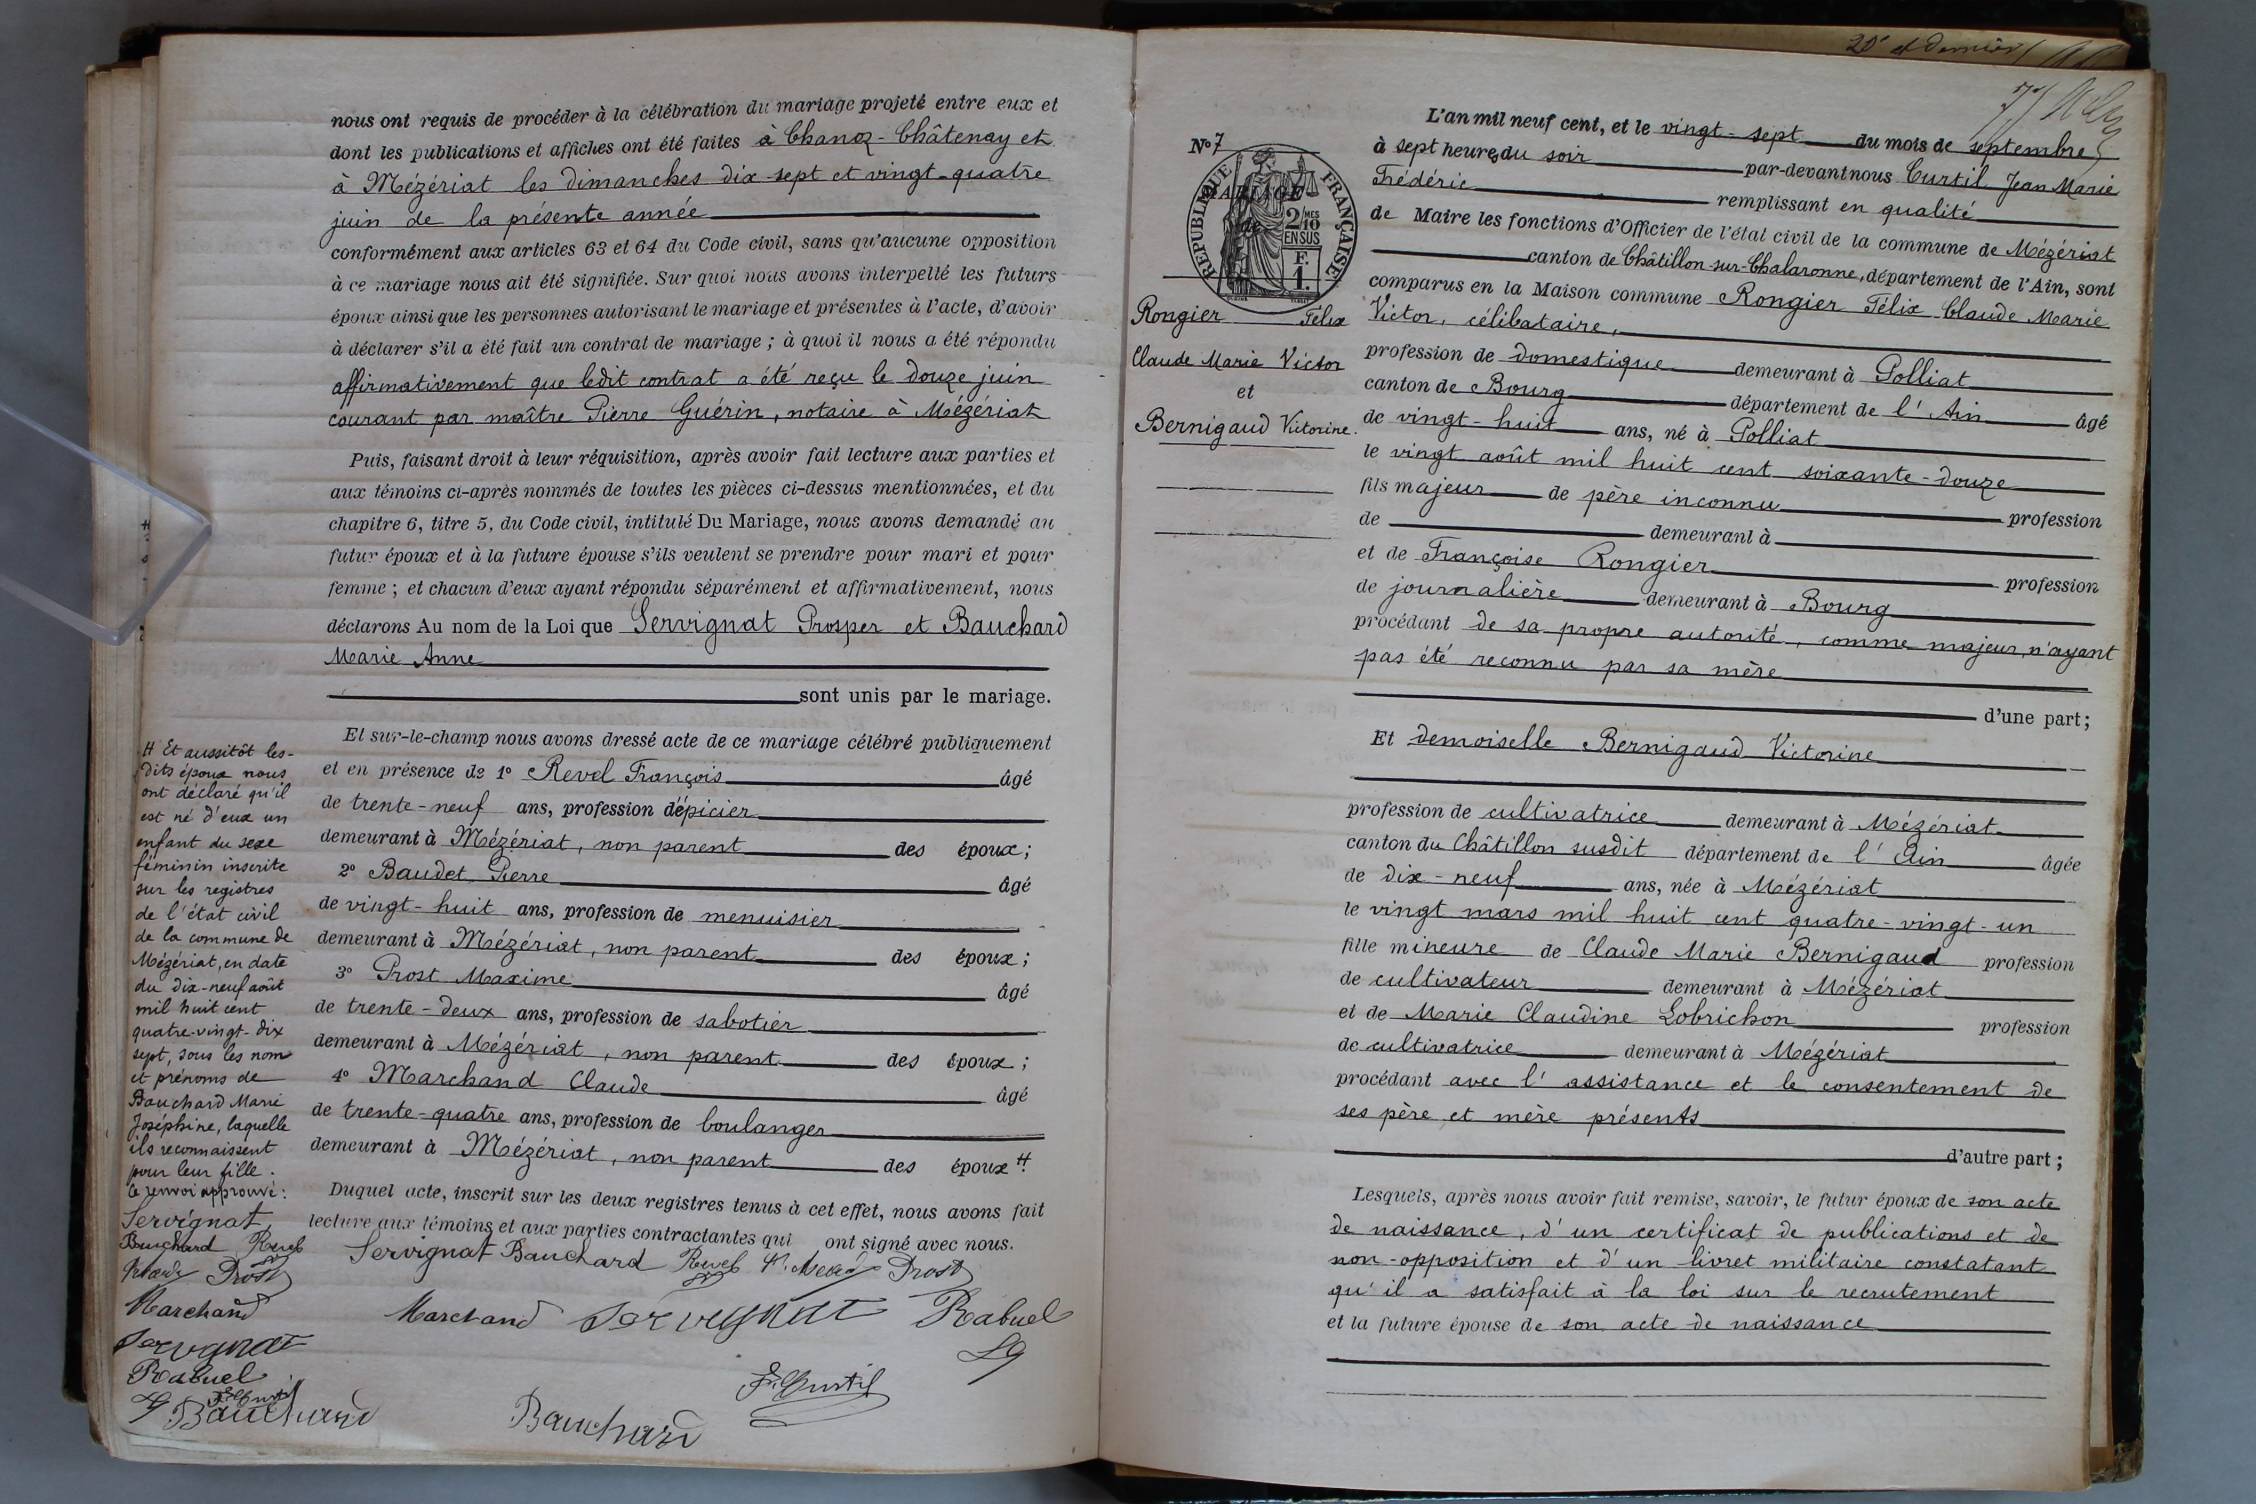 nous ont requis de procéder à la célébration du mariage projeté entre eux et
dont les publications et affiches ont été faites à Chanoz-Châtenay et
à Mézériat les dimanches dix-sept et vingt-quatre
juin de la présente année
conformément aux articles 63 et 64 du Code civil, sans qu'aucune opposition
à ce mariage nous ait été signifiée. Sur quoi nous avons interpellé les futurs
époux ainsi que les personnes autorisant le mariage et présentes à l'acte, d'avoir
à déclarer s'il a été fait un contrat de mariage ; à quoi il nous a été répondu
affirmativement que ledit contrat a été reçu le douze juin
courant par maître Pierre Guérin, notaire à Mézériat
Puis, faisant droit à leur réquisition, après avoir fait lecture aux parties et
aux témoins ci-après nommés de toutes les pièces ci-dessus mentionnées, et du
chapitre 6, titre 5, du Code civil, intitulé Du Mariage, nous avons demandé au
futur époux et à la future épouse s'ils veulent se prendre pour mari et pour
femme ; et chacun d'eux ayant répondu séparément et affirmativement, nous
déclarons Au nom de la Loi que Servignat Prosper et Bauchard
Marie Anne
sont unis par le mariage.
Et sur-le-champ nous avons dressé acte de ce mariage célébré publiquement
et en présence de 1° Revel François âgé
de trente-neuf ans, profession d'épicier
demeurant à Mézériat, non parent des époux ;
2° Baudet Pierre âgé
de vingt-huit ans, profession de menuisier
demeurant à Mézériat, non parent des époux ;
3° Prost Maxime âgé
de trente-deux ans, profession de sabotier
demeurant à Mézériat, non parent des époux ;
4° Marchand Claude âgé
de trente-quatre ans, profession de boulanger
demeurant à Mézériat, non parent des époux H.
Duquel acte, inscrit sur les deux registres tenus à cet effet, nous avons fait
lecture aux témoins et aux parties contractantes qui ont signé avec nous.
Servignat Bauchard Revel Prost
Marchand Servignat Rabuel
F. Curtil
Bauchard
H Et aussitôt les-
dits époux nous
ont déclaré qu'il
est né d'eux un
enfant du sexe
féminin inscrite
sur les registres
de l'état civil
de la commune de
Mézériat, en date
du dix-neuf août
mil huit cent
quatre-vingt-dix
sept, sous les nom
et prénoms de
Bauchard Marie
Joséphine, laquelle
ils reconnaissent
pour leur fille.
Ce renvoi approuvé :
Servignat
Bauchard Revel
Prost
Marchand
Servignat
Rabuel
F. Curtil
Bauchard
20e et dernier
7
N° 7
MARIAGE
de
RÉPUBLIQUE FRANÇAISE
2/10 MES
EN SUS
F.
1.
Rongier Félix
Claude Marie Victor
et
Bernigaud Victorine.
L'an mil neuf cent, et le vingt-sept du mois de septembre
à sept heures du soir par-devant nous Curtil Jean Marie
Frédéric remplissant en qualité
de Maire les fonctions d'Officier de l'état civil de la commune de Mézériat
canton de Châtillon-sur-Chalaronne, département de l'Ain, sont
comparus en la Maison commune Rongier Félix Claude Marie
Victor, célibataire,
profession de domestique demeurant à Polliat
canton de Bourg département de l'Ain âgé
de vingt-huit ans, né à Polliat
le vingt août mil huit cent soixante-douze
fils majeur de père inconnu profession
de demeurant à
et de Françoise Rongier profession
de journalière demeurant à Bourg
procédant de sa propre autorité, comme majeur, n'ayant
pas été reconnu par sa mère
d'une part ;
Et demoiselle Bernigaud Victorine
profession de cultivatrice demeurant à Mézériat
canton du Châtillon susdit département de l'Ain âgée
de dix-neuf ans, née à Mézériat
le vingt mars mil huit cent quatre-vingt-un
fille mineure de Claude Marie Bernigaud profession
de cultivateur demeurant à Mézériat
et de Marie Claudine Lobrichon profession
de cultivatrice demeurant à Mézériat
procédant avec l'assistance et le consentement de
ses père et mère présents
d'autre part ;
Lesquels, après nous avoir fait remise, savoir, le futur époux de son acte
de naissance, d'un certificat de publications et de
non-opposition et d'un livret militaire constatant
qu'il a satisfait à la loi sur le recrutement
et la future épouse de son acte de naissance